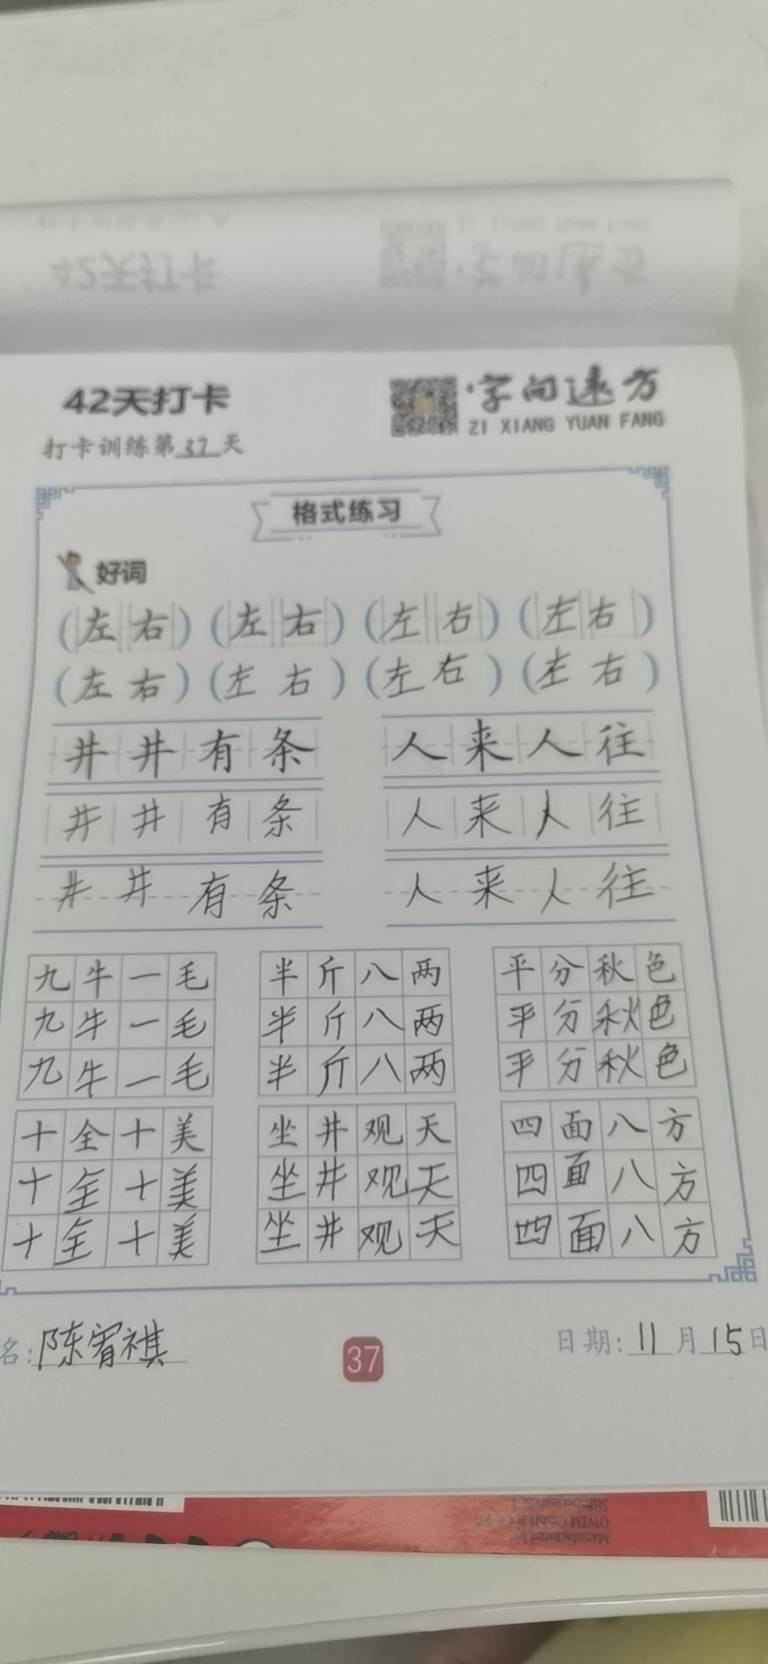 42天打卡
字向远方
ZI XIANG YUAN FANG
打卡训练第37天
格式练习
好词
(左右) (左右) (左右) (左右)
(左右) (左右) (左右) (左右)
井井有条 人来人往
井井有条 人来人往
井井有条 人来人往
九牛一毛 半斤八两 平分秋色
九牛一毛 半斤八两 平分秋色
九牛一毛 半斤八两 平分秋色
十全十美 坐井观天 四面八方
十全十美 坐井观天 四面八方
十全十美 坐井观天 四面八方
名:陈宥祺
37
日期:11月15日
Manufactured by
OWIM GmbH & Co. KG